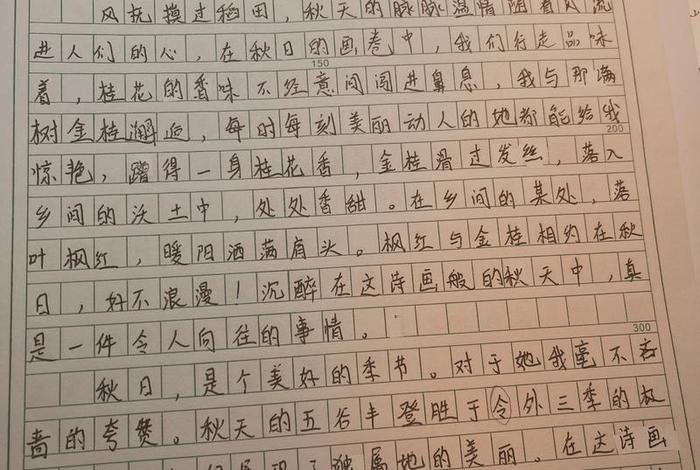 风抚摸过稻田，秋天的脉脉温情随着风流
进人们的心，在秋日的画卷中，我们行走品味
150
着，桂花的香味不经意间闯进鼻息，我与那满
树金桂邂逅，每时每刻美丽动人的她都能给我
200
惊艳，蹭得一身桂花香，金桂滑过发丝，落入
乡间的沃土中，处处香甜。在乡间的某处，落
叶枫红，暖阳洒满肩头。枫红与金桂相约在秋
日，好不浪漫！沉醉在这诗画般的秋天中，真
是一件令人向往的事情。
300
秋日，是个美好的季节。对于她我毫不吝
啬的夸赞。秋天的五谷丰登胜于令外三季的
了独属她的美丽。在这诗画